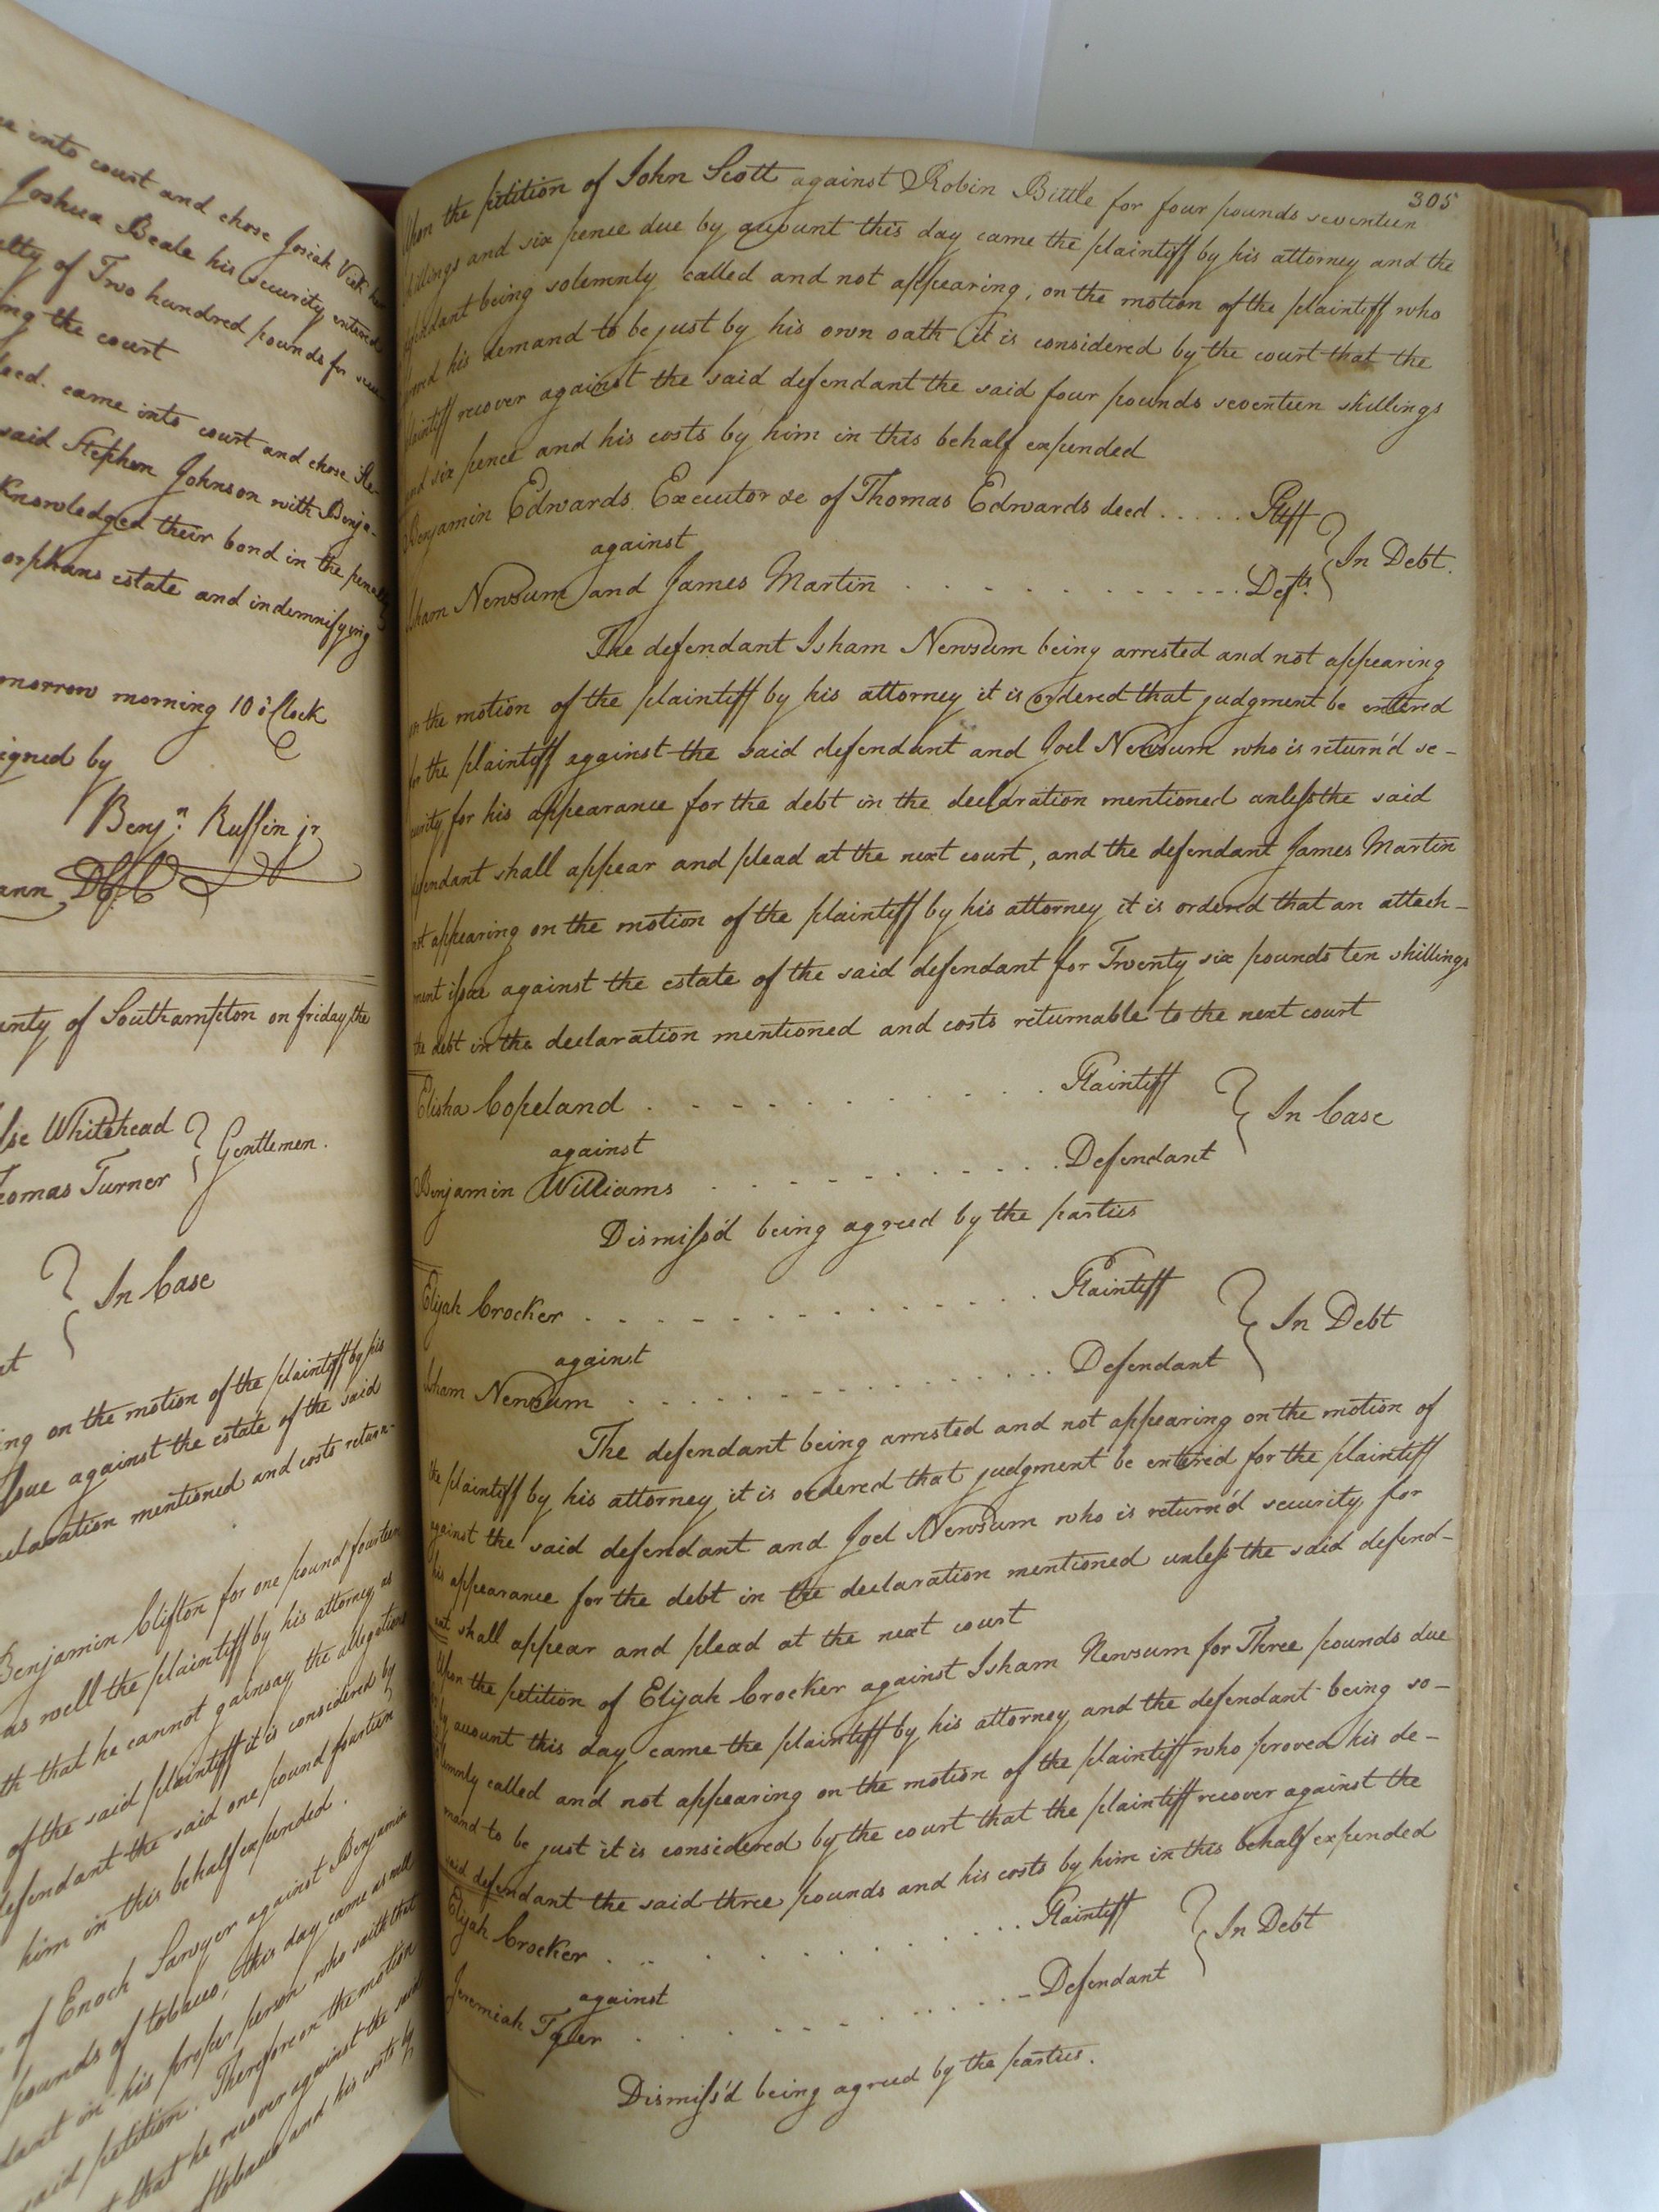 into court and chose Josiah Vick her
Joshua Beale his security entered
of Two hundred pounds for
the court
deed. came into court and chose Ste-
said Stephen Johnson with Benja-
knowledged their bond in the penalty
orphans estate and indemnifying
morrow morning 10 o'Clock
signed by
Benj.n Ruffin jr
of Southampton on friday the
Whitehead
Thomas Turner } Gentlemen.
} In Case
on the motion of the plaintiff by his
against the estate of the said
mentioned and costs return-
Benjamin Clifton for one pound fourteen
as well the plaintiff by his attorney as
that he cannot gainsay the allegations
of the said plaintiff it is considered by
defendant the said one pound fourteen
him in this behalf expended.
of Enoch Sawyer against Benjamin
pounds of tobacco, this day came as well
in his proper person who saith that
said petition. Therefore on the motion
that he recover against the said
and his costs by
305
Upon the petition of John Scott against Robin Bittle for four pounds seventeen
shillings and six pence due by account this day came the plaintiff by his attorney and the
defendant being solemnly called and not appearing, on the motion of the plaintiff who
his demand to be just by his own oath it is considered by the court that the
plaintiff recover against the said defendant the said four pounds seventeen shillings
and six pence and his costs by him in this behalf expended
Benjamin Edwards Executor &c of Thomas Edwards deed ..... Pltff
against } In Debt.
Isham Newsum and James Martin . . . . . . . . . . Defts.
The defendant Isham Newsum being arrested and not appearing
on the motion of the plaintiff by his attorney it is ordered that judgment be entered
for the plaintiff against the said defendant and Joel Newsum who is return'd se-
curity for his appearance for the debt in the declaration mentioned unless the said
defendant shall appear and plead at the next court, and the defendant James Martin
not appearing on the motion of the plaintiff by his attorney it is ordered that an attach-
ment issue against the estate of the said defendant for Twenty six pounds ten shillings
the debt in the declaration mentioned and costs returnable to the next court
Elisha Copeland . . . . . . . . . . Plaintiff
against } In Case
Benjamin Williams . . . . . . . . . . Defendant
Dismiss'd being agreed by the parties
Elijah Crocker . . . . . . . . . . Plaintiff
against } In Debt
Isham Newsum . . . . . . . . . . Defendant
The defendant being arrested and not appearing on the motion of
the plaintiff by his attorney it is ordered that judgment be entered for the plaintiff
against the said defendant and Joel Newsum who is return'd security for
his appearance for the debt in the declaration mentioned unless the said defend-
ant shall appear and plead at the next court
Upon the petition of Elijah Crocker against Isham Newsum for Three pounds due
by account this day came the plaintiff by his attorney and the defendant being so-
lemnly called and not appearing on the motion of the plaintiff who proved his de-
mand to be just it is considered by the court that the plaintiff recover against the
said defendant the said three pounds and his costs by him in this behalf expended
Elijah Crocker . . . . . . . . . . Plaintiff
against } In Debt
Jeremiah Tyler . . . . . . . . . . Defendant
Dismiss'd being agreed by the parties.